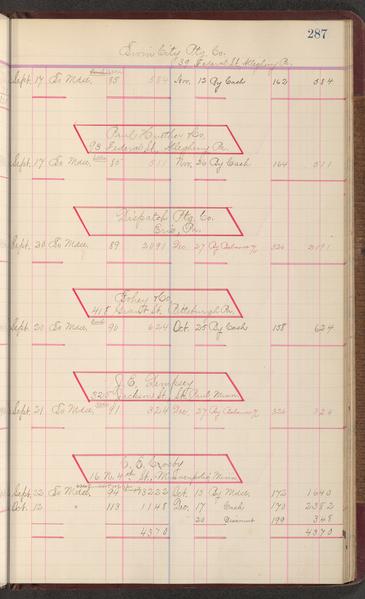 287
Twin City Ptg. Co.
39 Federal St. Allegheny Pa.
Sept. 17 To Mdse. 85 584 Nov. 13 By Cash 162 584
Paul Co.
93 Federal St., Allegheny Pa.
Sept. 17 To Mdse. 85 511 Nov. 26 By Cash 164 511
Dispatch Ptg. Co.
Erie, Pa.
Sept. 20 To Mdse. 89 2091 Dec. 27 By Balance 326 2091
Co.
418 Grant St. Pittsburgh Pa.
Sept. 20 To Mdse. 90 624 Oct. 25 By Cash 158 624
J. E. Dempsey
325 Jackson St., St. Paul Minn
Sept. 21 To Mdse. 91 324 Dec. 27 By Balance 326 324
C. E. Crosby
16 No. 4th St., Minneapolis Minn
Sept. 22 To Mdse. 94 3222 Oct. 13 By Mdse. 172 1640
Oct. 12 " 113 1148 Dec. 17 Cash 170 2382
20 Discount 199 348
4370 4370